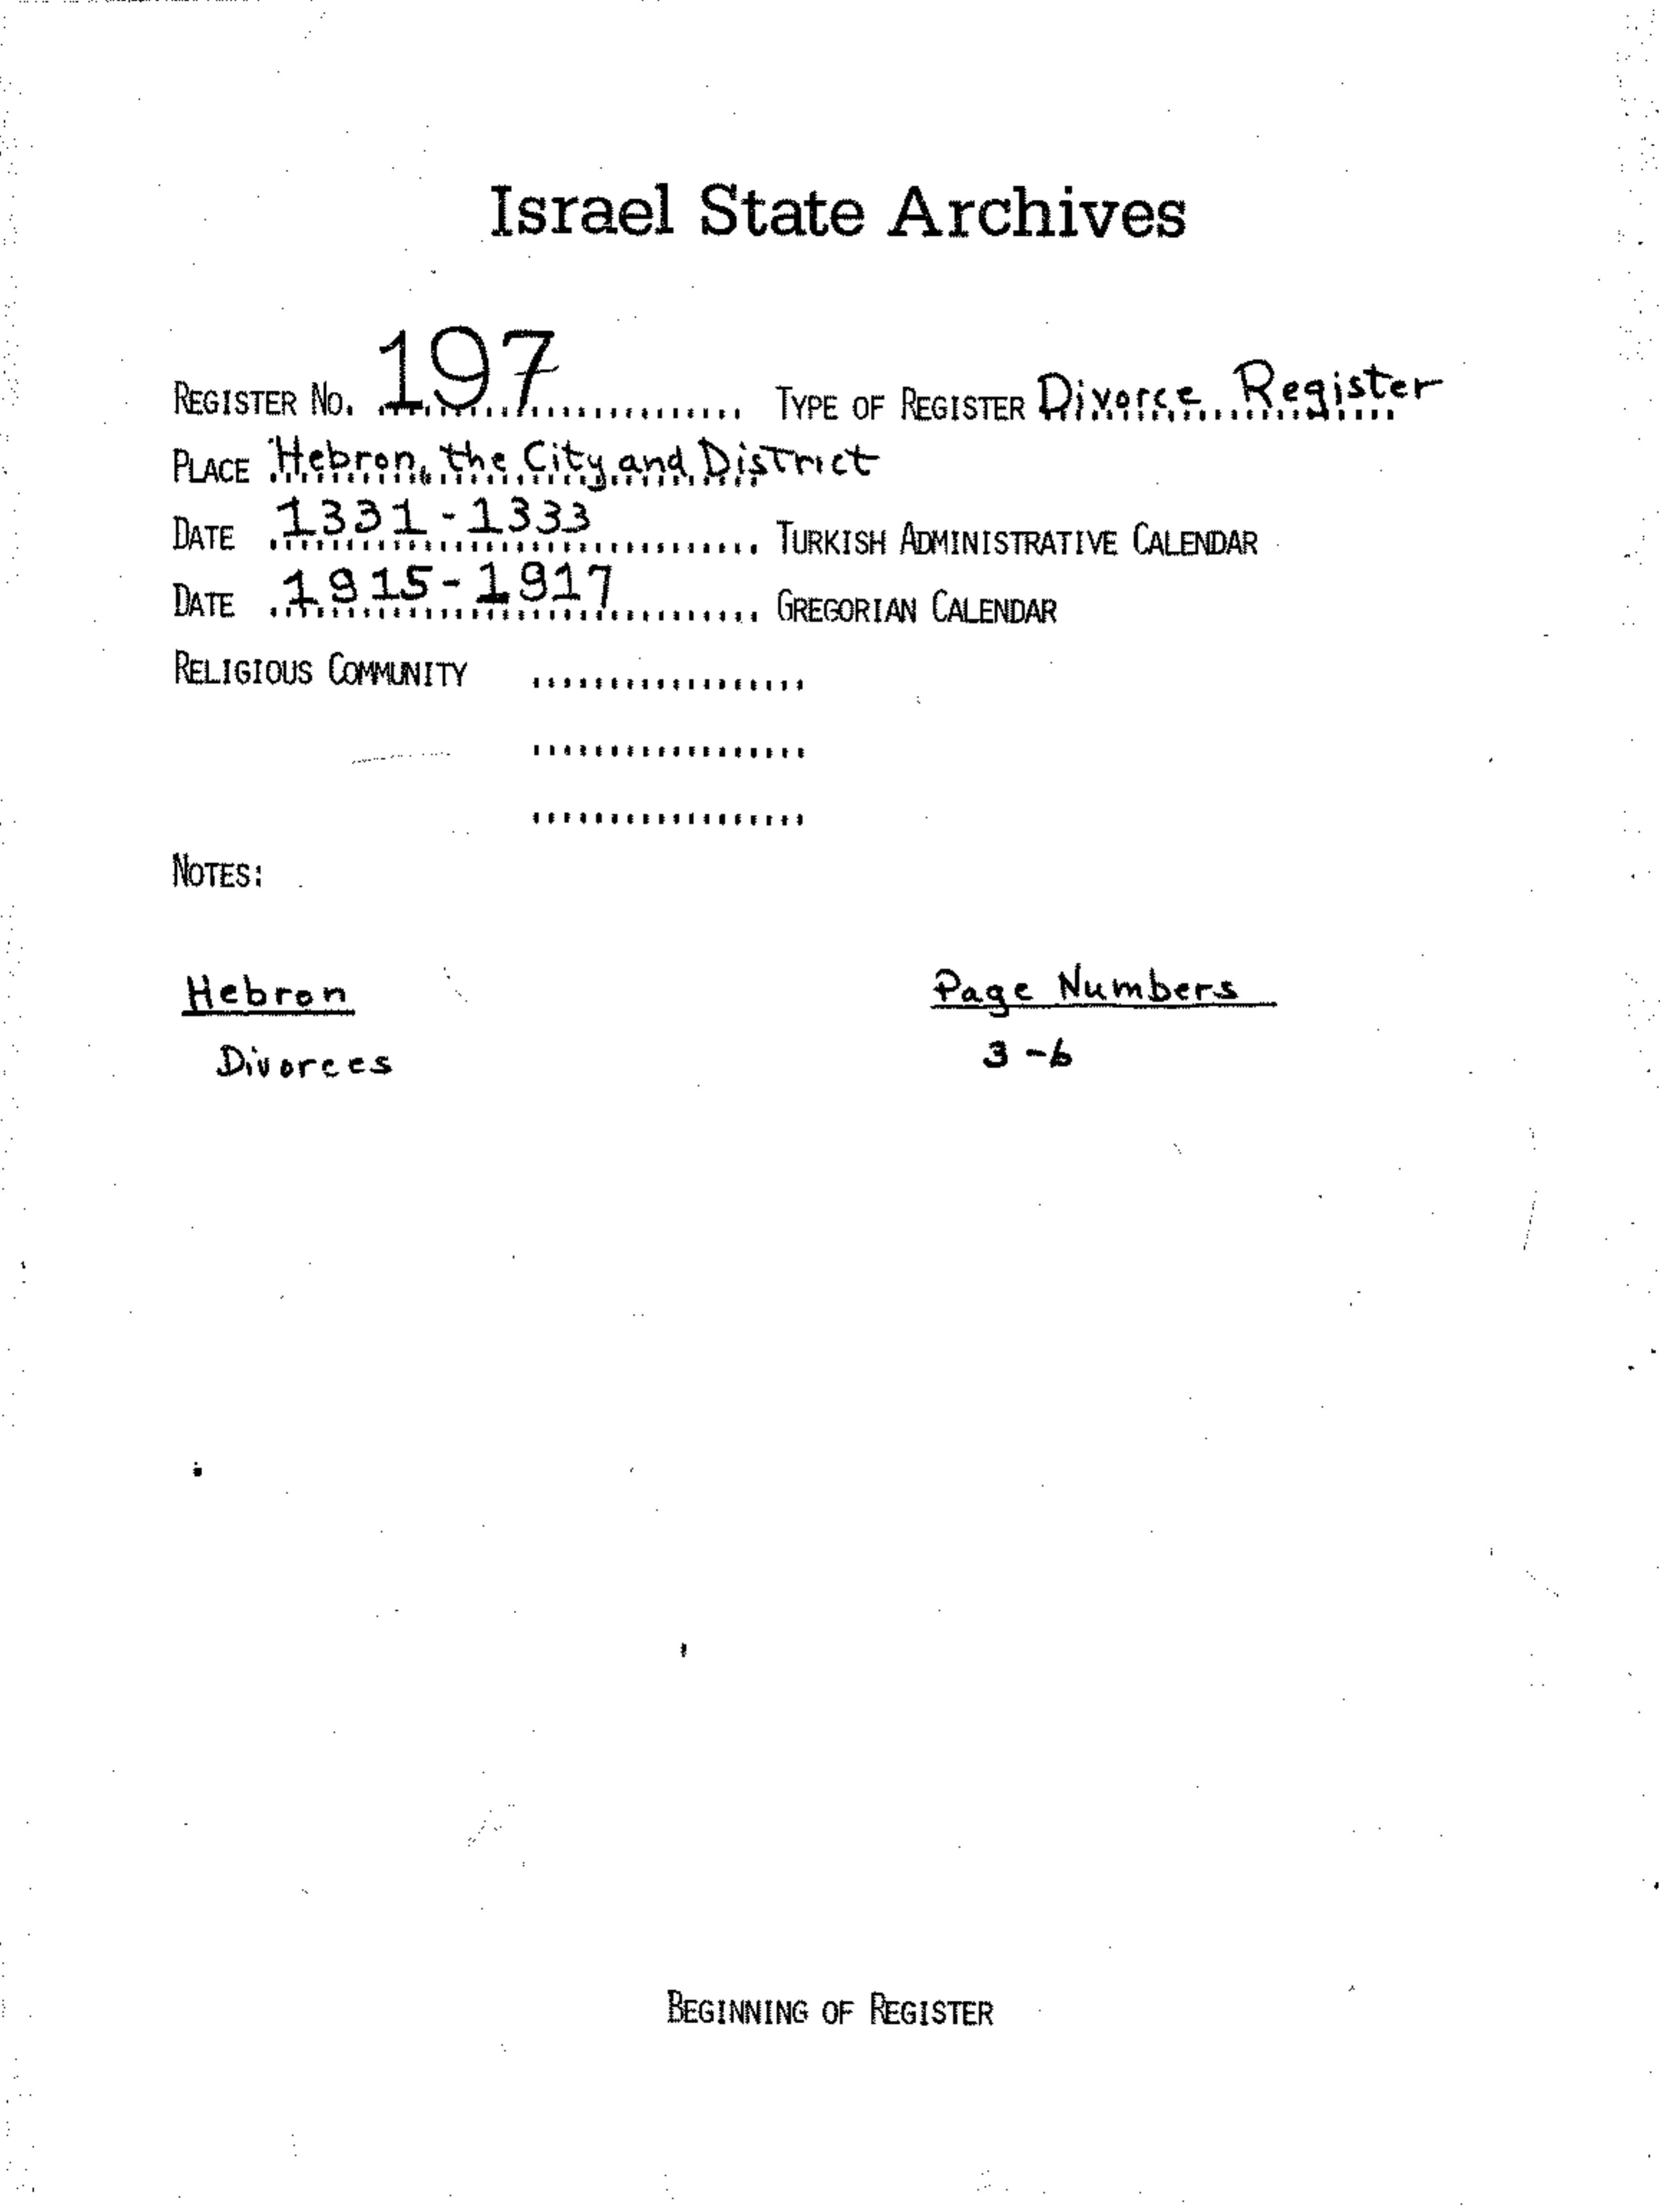 Israel State Archives
REGISTER NO. 197 TYPE OF REGISTER Divorce Register
PLACE Hebron, the City and District
DATE 1331-1333 TURKISH ADMINISTRATIVE CALENDAR
DATE 1915-1917 GREGORIAN CALENDAR
RELIGIOUS COMMUNITY
NOTES:
Hebron Page Numbers
Divorces 3-6
BEGINNING OF REGISTER